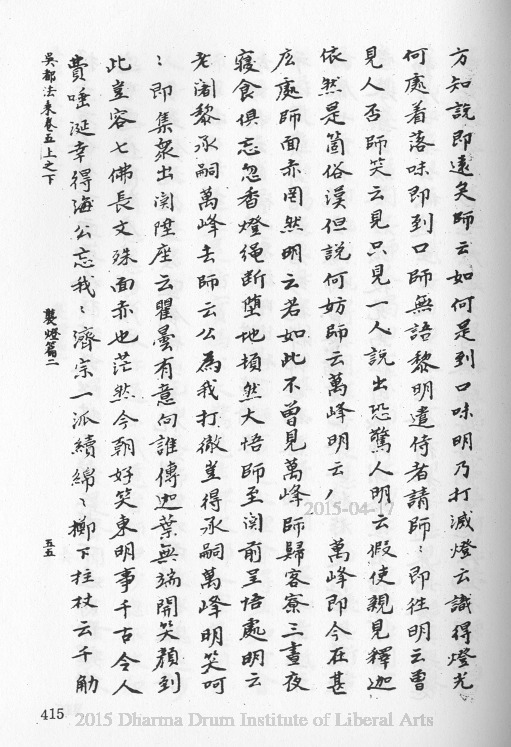 方知說即遠矣師云如何是到口味明乃打滅燈云識得燈光
何處着落味即到口師無語黎明遣侍者請師〻即徃明云曾
見人否師笑云見只見一人說出恐驚人明云假使親見釋迦
依然是箇俗漢但說何妨師云萬峰明云 萬峰即今在甚
庅處師面赤罔然明云若如此不曾見萬峰師歸客寮三晝夜
寢食俱忘忽香燈繩斷墮地頓然大悟師至関前呈悟處明云
老闍黎承嗣萬峰去師云公為我打徹豈得承嗣萬峰明笑呵
〻即集衆出関陞座云瞿曇有意向誰傳迦葉無端開笑顏到
此豈容七佛長文殊面赤也茫然今朝好笑東明事千古令人
費唾涎幸得海公忘我〻濟宗一派續綿〻擲下柱杖云千觔
吳都法乘卷五上之下 襲燈篇二 五五
415
2015-04-17
2015 Dharma Drum Institute of Liberal Arts